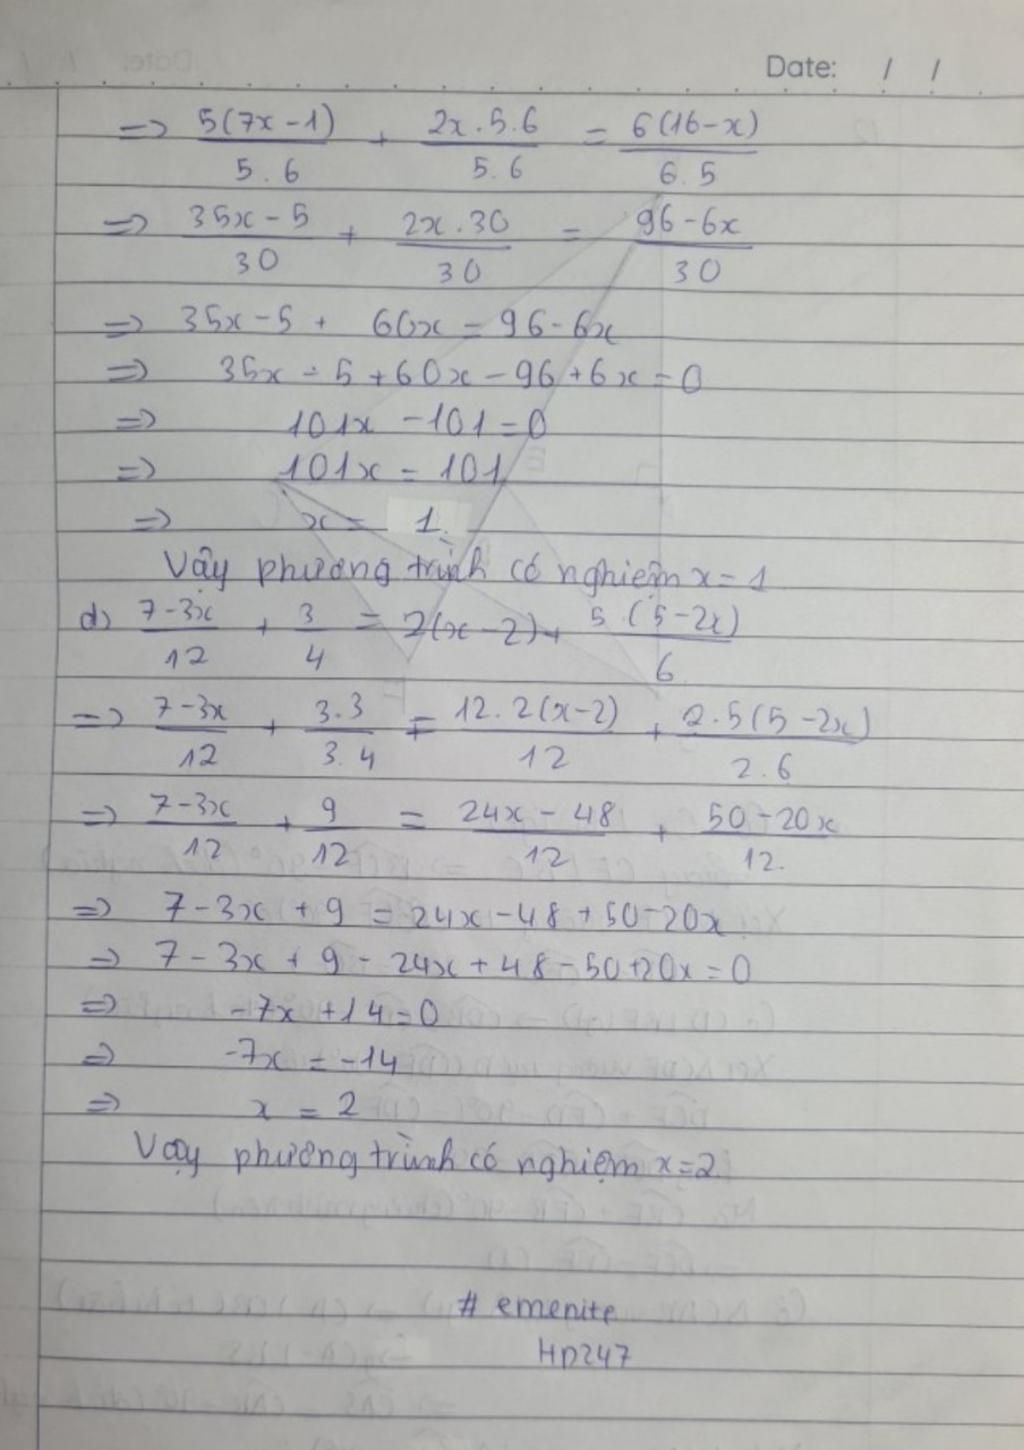 Date: / /
=> 5(7x-1)/5.6 + 2x.5.6/5.6 = 6(16-x)/6.5
=> 35x-5/30 + 2x.30/30 = 96-6x/30
=> 35x-5 + 60x = 96-6x
=> 35x-5+60x-96+6x=0
=> 101x -101=0
=> 101x = 101
=> x = 1.
Vậy phương trình có nghiệm x=1
d) 7-3x/12 + 3/4 = 2(x-2)+ 5.(5-2x)/6
=> 7-3x/12 + 3.3/3.4 = 12.2(x-2)/12 + 2.5(5-2x)/2.6
=> 7-3x/12 + 9/12 = 24x-48/12 + 50-20x/12.
=> 7-3x+9=24x-48+50-20x
=> 7-3x+9-24x+48-50+20x=0
=> -7x+14=0
=> -7x=-14
=> x = 2
Vậy phương trình có nghiệm x=2.
# emenite
HP247